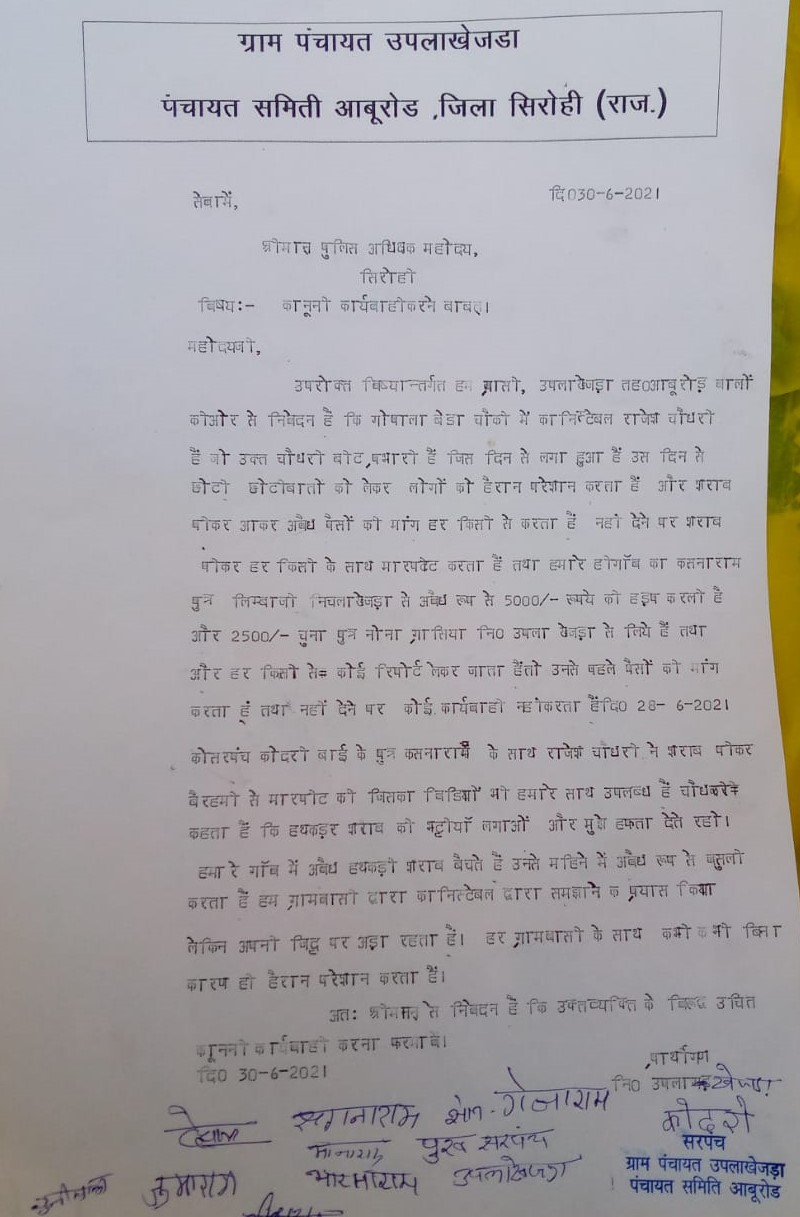 ग्राम पंचायत उपलाखेजडा
पंचायत समिती आबूरोड ,जिला सिरोही (राज.)
सेवामें,
दि030-6-2021
श्रीमान पुलिस अधिक्षक महोदय,
सिरोही
विषय:- कानूनी कार्यवाहीकरने बाबत्।
महोदयजी,
उपरोक्त विष्यान्तर्गत हम ग्रासी, उपलाखेजड़ा तह0आबूरोड़ वालों
कीओर से निवेदन हैं कि गोपाला बेडा चौकी में कानिस्टेबल राजेश चौधरी
हैं जो उक्त चौधरी बीट प्रभारी हैं जिस दिन से लगा हुआ हैं उस दिन से
छोटी छोटीबातों को लेकर लोगों को हैरान परेशान करता हैं और शराब
पीकर आकर अवैध पैसों की मांग हर किसी से करता हैं नहीं देने पर शराब
पीकर हर किसी के साथ मारपीट करता हैं तथा हमारे हीगॉव का कसनाराम
पुत्र लिम्बाजी निचलाखेजड़ा से अवैध रूप से 5000/- रूपये की हड़प करली है
और 2500/- चुना पुत्र नोना ग्रासिया नि0 उपला खेजड़ा से लिये हैं तथा
और हर किसी से कोई रिपोर्ट लेकर जाता हैंतो उनसे पहले पैसों की मांग
करता हूं तथा नहीं देने पर कोई कार्यवाही नहीकरता हैंदि0 28- 6-2021
कोसरपंच कोदरी बाई के पुत्र कसनाराम के साथ राजेश चौधरी ने शराब पीकर
बैरहमी से मारपीट की जिसका विडियों भी हमारे साथ उपलब्ध हैं
कहता हैं कि हथकड़र शराब की भट्टीयॉ लगाओं और मुझे हफता देते रहो।
हमारे गॉव में अवैध हथकड़ी शराब बैचते हैं उनसे महिने में अवैध रूप से वसुली
करता हैं हम ग्रामवासी द्वारा कानिस्टेबल द्वारा समझाने क प्रयास किया
लेकिन अपनी जिद्द पर अड़ा रहता हैं। हर ग्रामवासी के साथ कभी कभी बिना
कारण ही हैरान परेशान करता हैं।
अत: श्रीमान् से निवेदन हैं कि उक्तव्यक्ति के विरूद्ध उचित
कानूनी कार्यवाही करना फरमावें।
दि0 30-6-2021
प्रार्थीगण
नि0 उपला खेजड़ा
भोपा
कोदरी
सरपंच
ग्राम पंचायत उपलाखेजड़ा
पंचायत समिति आबूरोड
मानाराम पुख सरपंच
भारमाराम उपलाखेजड़ा